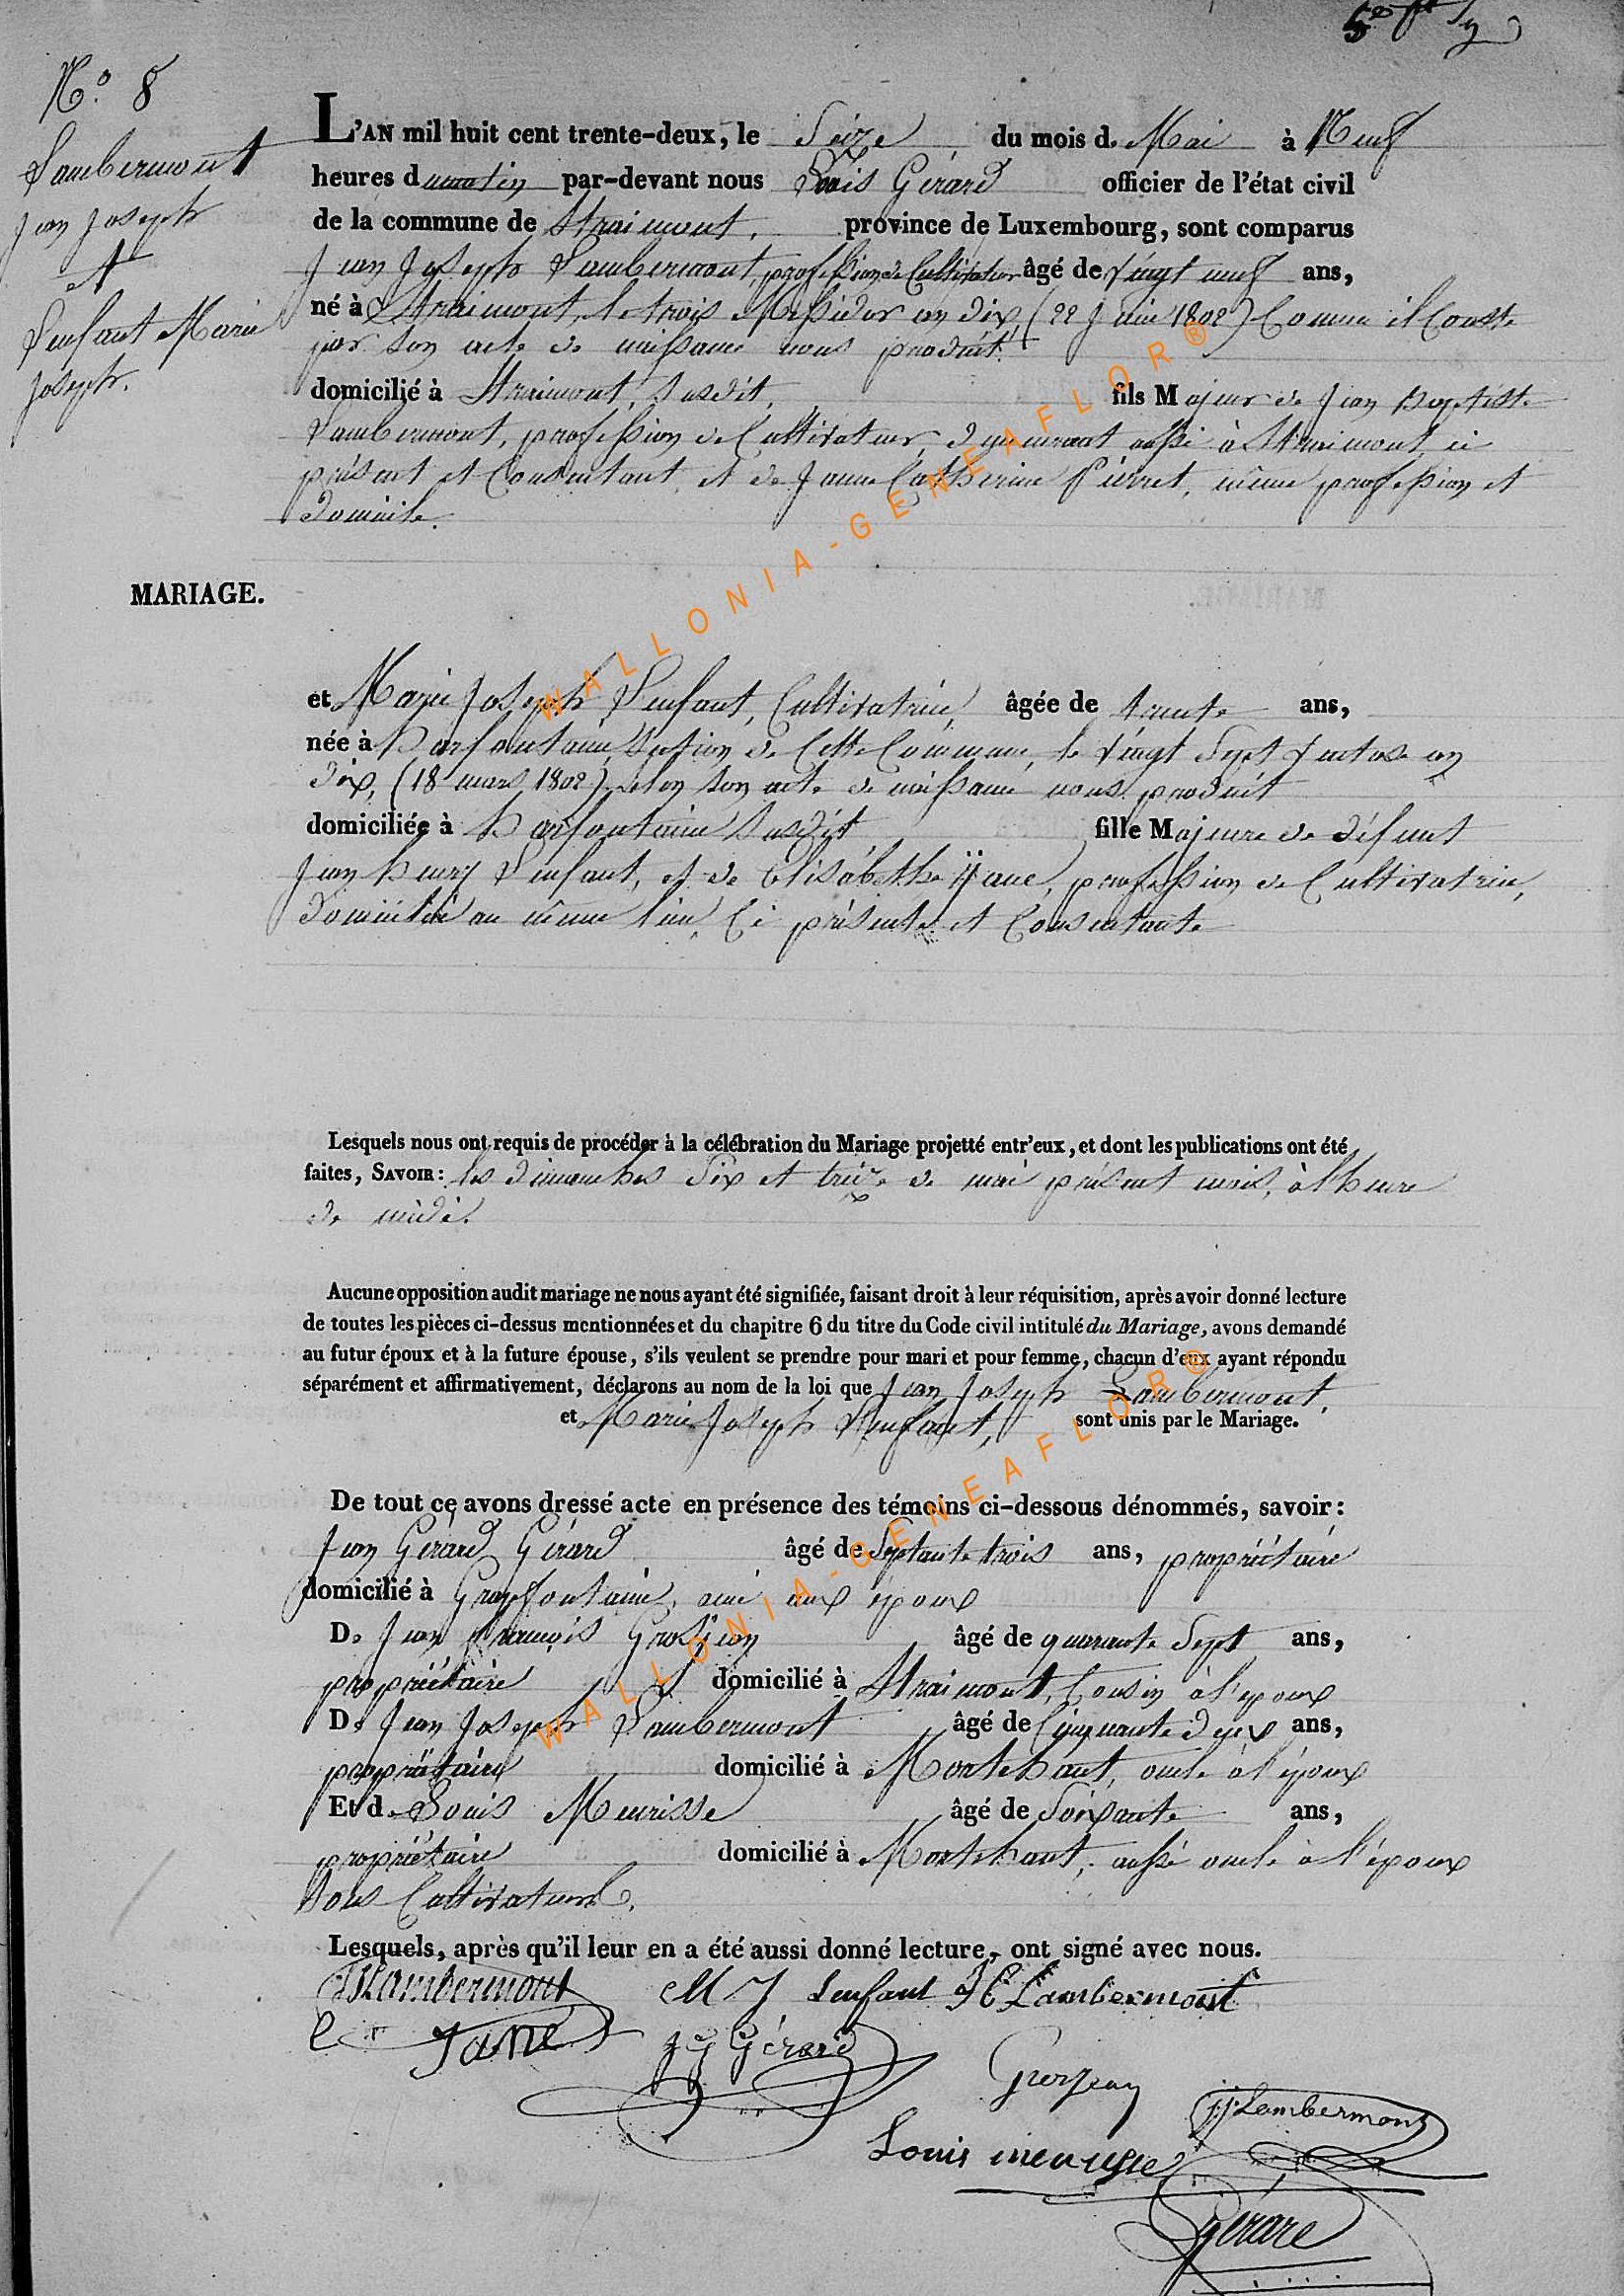 N.° 8
Lambermont
Jean Joseph
et
Lenfant Marie
Joseph.
L'AN mil huit cent trente-deux, le Seize du mois de Mai à Neuf
heures du matin par-devant nous Louis Gérard officier de l'état civil
de la commune de Straimont, province de Luxembourg, sont comparus
Jean Joseph Lambermont, profession de Cultivateur âgé de vingt neuf ans,
né à Straimont, le trois Messidor an dix, (22 Juin 1802) Comme il Conste
par son acte de naissance nous produit.
domicilié à Straimont, susdit, fils Majeur de Jean Baptiste
Lambermont, profession de Cultivateur, demeurant aussi à Straimont, ci
présent et Consentant, et de Jeanne Catherine Pierret, même profession et
domicile.
MARIAGE.
et Marie Joseph Lenfant, Cultivatrice, âgée de trente ans,
née à harfontaine, Section de Cette Commune, le vingt Sept ventose an
dix, (18 mars 1802) selon son acte de naissance nous produit
domiciliée à harfontaine susdit fille Majeure de défunt
Jean henry Lenfant, et de Elisabethe Yane, profession de Cultivatrice,
domiciliée au même lieu, Ci présente et Consentante
Lesquels nous ont requis de procéder à la célébration du Mariage projetté entr'eux, et dont les publications ont été
faites, SAVOIR: les dimanches Six et treize de mai présent mois, à l'heure
de midi.
Aucune opposition audit mariage ne nous ayant été signifiée, faisant droit à leur réquisition, après avoir donné lecture
de toutes les pièces ci-dessus mentionnées et du chapitre 6 du titre du Code civil intitulé du Mariage, avons demandé
au futur époux et à la future épouse, s'ils veulent se prendre pour mari et pour femme, chacun d'eux ayant répondu
séparément et affirmativement, déclarons au nom de la loi que Jean Joseph Lambermont,
et Marie Joseph Lenfant, sont unis par le Mariage.
De tout ce avons dressé acte en présence des témoins ci-dessous dénommés, savoir:
Jean Gérard Gérard âgé de Septante trois ans, propriétaire
domicilié à Grapfontaine, ami aux époux
De Jean François Grosjean âgé de quarante Sept ans,
propriétaire domicilié à Straimont, Cousin à l'époux
De Jean Joseph Lambermont âgé de Cinquante deux ans,
propriétaire domicilié à Montehant, oncle à l'époux
Et de Louis Meurisse âgé de Soixante ans,
propriétaire domicilié à Montehant, aussi oncle à l'époux
tous Cultivateurs.
Lesquels, après qu'il leur en a été aussi donné lecture, ont signé avec nous.
JB Lambermont M J Lenfant Lambermont
e Jane J G Gérard
Grosjean
jj Lambermont
Louis meurisse
Gérard
WALLONIA-GENEAFLOR®
WALLONIA-GENEAFLOR®